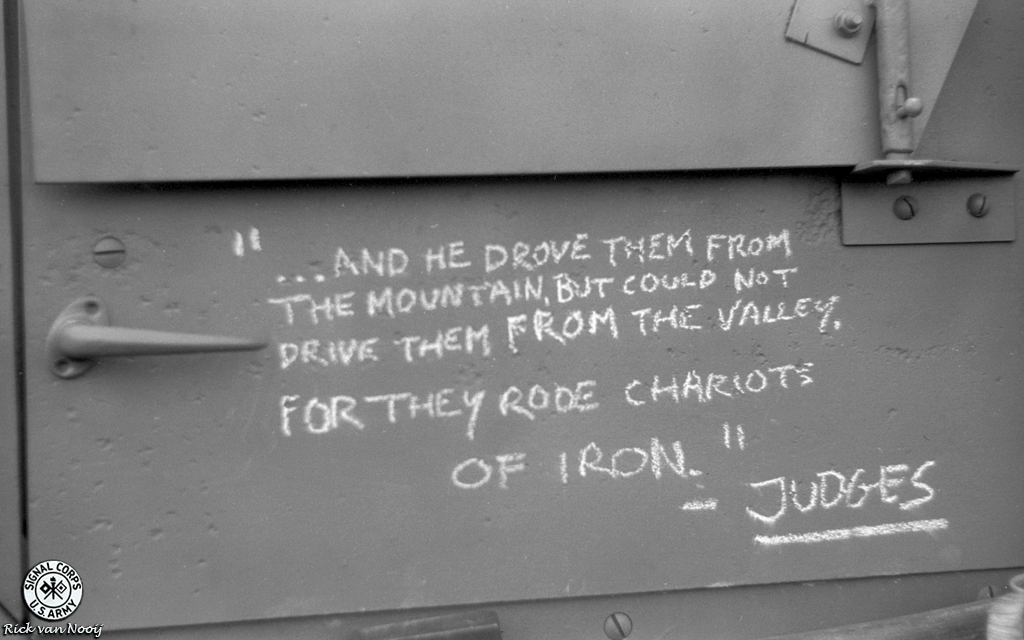 "...AND HE DROVE THEM FROM
THE MOUNTAIN, BUT COULD NOT
DRIVE THEM FROM THE VALLEY.
FOR THEY RODE CHARIOTS
OF IRON."
- JUDGES
SIGNAL CORPS
U.S. ARMY
Rick van Nooij